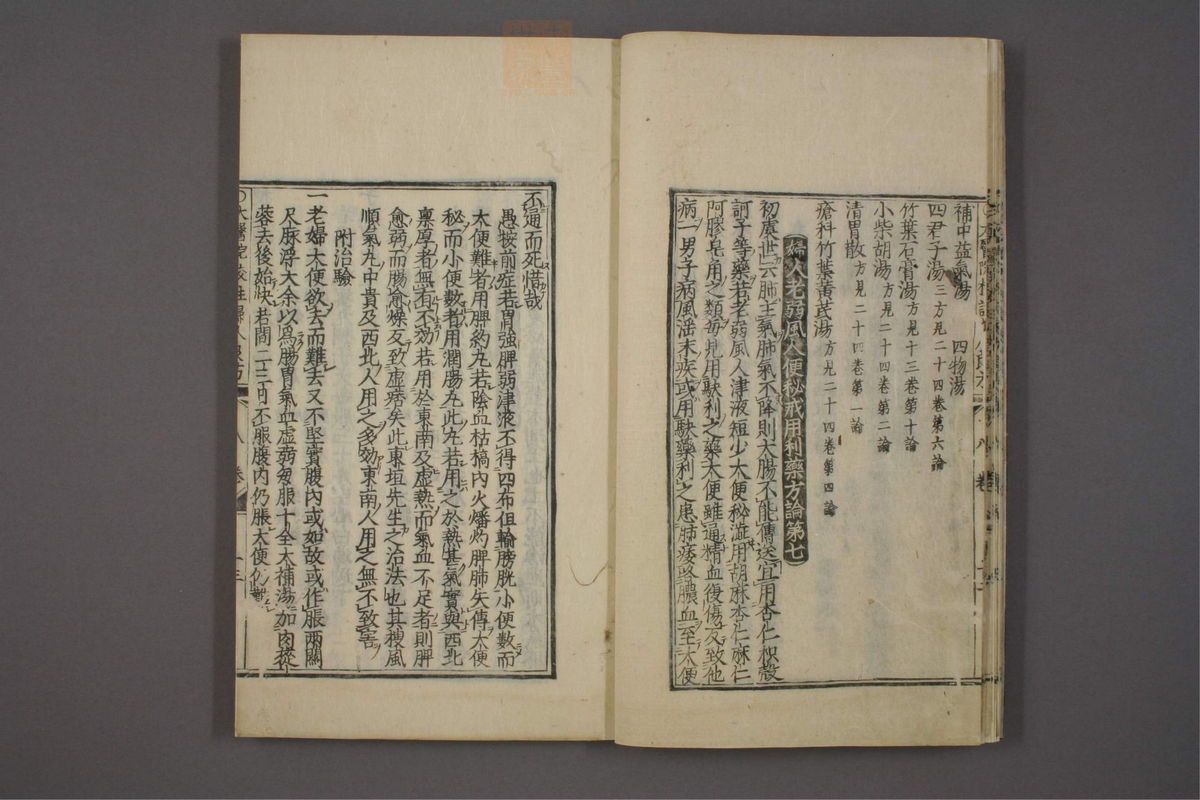 補中益氣湯　四物湯
四君子湯三方見二十四卷第六論
竹葉石膏湯方見十三卷第十論
小柴胡湯方見二十四卷第二論
清胃散方見二十四卷第一論
瘡科竹葉黃芪湯方見二十四卷第四論
婦人老弱風人便秘戒用利藥方論第七
初虞世云肺主氣肺氣不降則大腸不能傳送宜用杏仁枳殼
訶子等藥若老弱風人津液短少大便秘澁用胡麻杏仁麻仁
阿膠皂角之類每見用駃利之藥大便雖通精血復傷反致他
病一男子病風淫末疾或用駃藥利之患肺痿咯膿血至大便
不通而死惜哉
愚按前症若胃強脾弱津液不得四布但輸膀胱小便數而
大便難者用脾約丸若陰血枯槁內火燔灼脾肺失傳大便
秘而小便數者用潤腸丸此丸若用之於熱甚氣實與西北
稟厚者無有不効若用於東南及虛熱而氣血不足者則脾
愈弱而腸愈燥反致虛痞矣此東垣先生之治法也其搜風
順氣丸中貴及西北人用之多効東南人用之無不致害
附治驗
一老婦大便欲去而難去又不堅實腹內或如故或作脹兩關
尺脉浮大余以爲腸胃氣血虛弱每服十全大補湯加肉蓯
蓉去後始快若間二三日不服腹內仍脹大便仍難